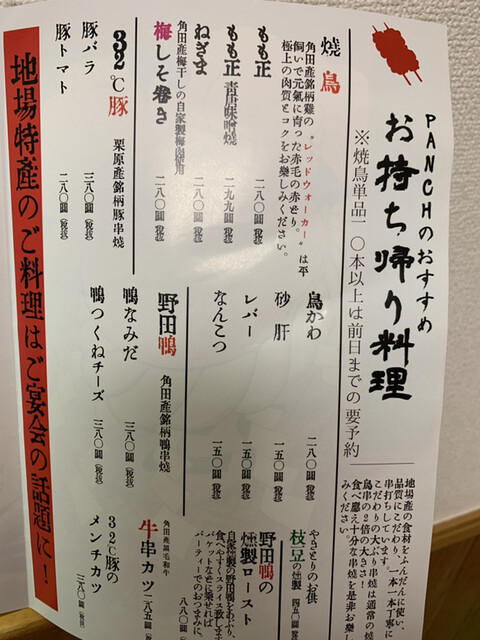 PANCHのおすすめ
お持ち帰り料理
※焼鳥単品一〇本以上は前日までの要予約
地場産の食材をふんだんに使い、
品質にこだわり、一本一本丁寧に
串打ちしています。
こだわりの大ぶり串焼は通常の焼
鳥串の2倍の大きさ！
食べ応え十分な串焼を是非お楽し
みください。
焼鳥
角田産銘柄雞の"レッドウォーカー"は平
飼いで元氣に育った赤毛の赤どり。
極上の肉質とコクをお楽しみください。
もも正 二八〇圓(税抜)
もも正 青唐味噌焼 二九九圓(税抜)
ねぎま 二八〇圓(税抜)
梅しそ巻き 二八〇圓(税抜)
角田産梅干しの自家製梅肉使用
鳥かわ 二八〇圓(税抜)
砂肝 一五〇圓(税抜)
レバー 一五〇圓(税抜)
なんこつ 一五〇圓(税抜)
やきとりのお供
枝豆の燻製 四五〇圓(税抜)
32℃豚 栗原産銘柄豚串焼
豚バラ 三八〇圓(税抜)
豚トマト 二八〇圓(税抜)
野田鴨 角田産銘柄鴨串焼
鴨なみだ 三八〇圓(税抜)
鴨つくねチーズ 三八〇圓(税抜)
野田鴨の
燻製ロースト
自家燻製の野田鴨をあぶり、
食べやすくスライス致します。
バゲットなどに乗せれば
パーティーでのおつまみに。
八八〇圓(税抜)
角田産黒毛和牛
牛串カツ 二八五圓(税抜)
32℃豚の
メンチカツ 三八〇圓(税抜)
地場特産のご料理はご宴会の話題に！